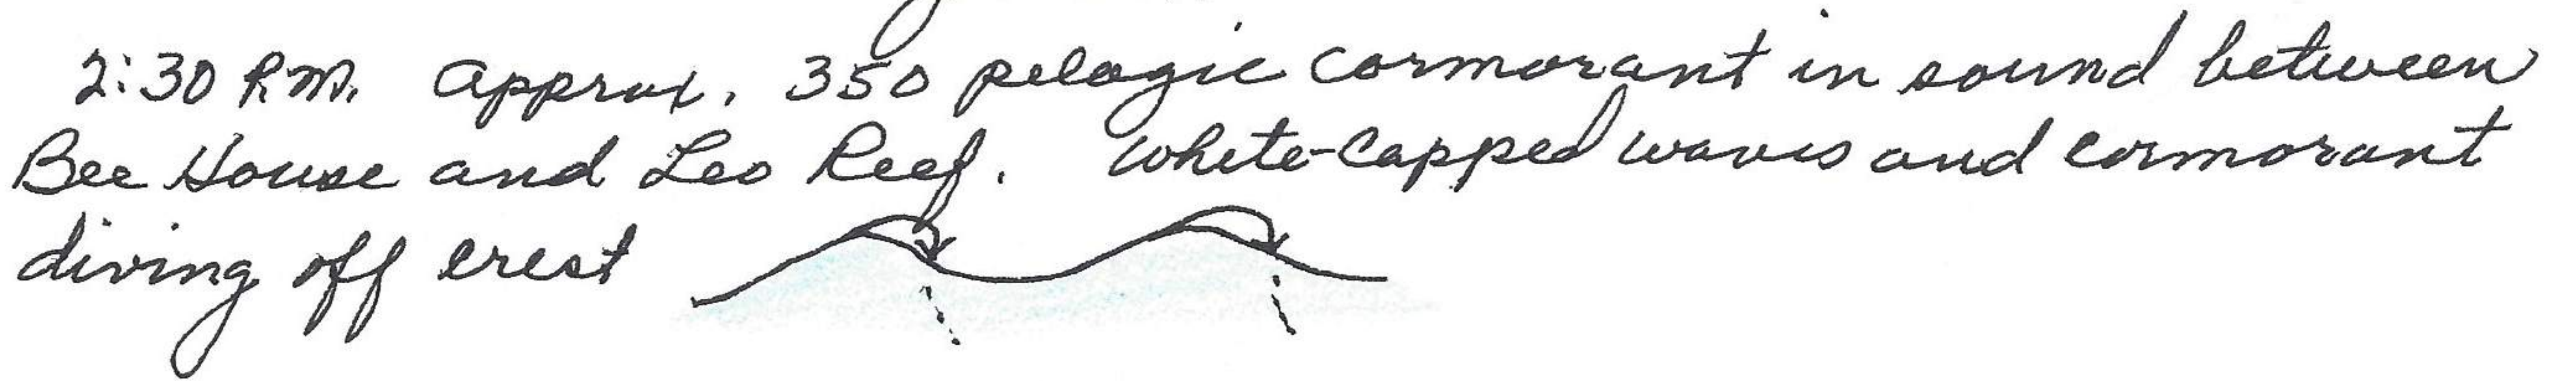 2:30 P.M. approx. 350 pelagic cormorant in sound between
Bee House and Leo Reef. White-capped waves and cormorant
diving off crest